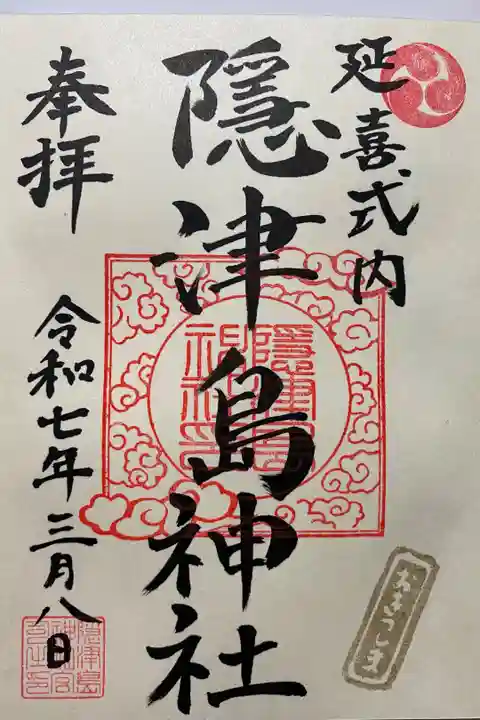 延喜式内
隠津島神社
奉拝
令和七年三月八日
隠津島神社
おきつしま